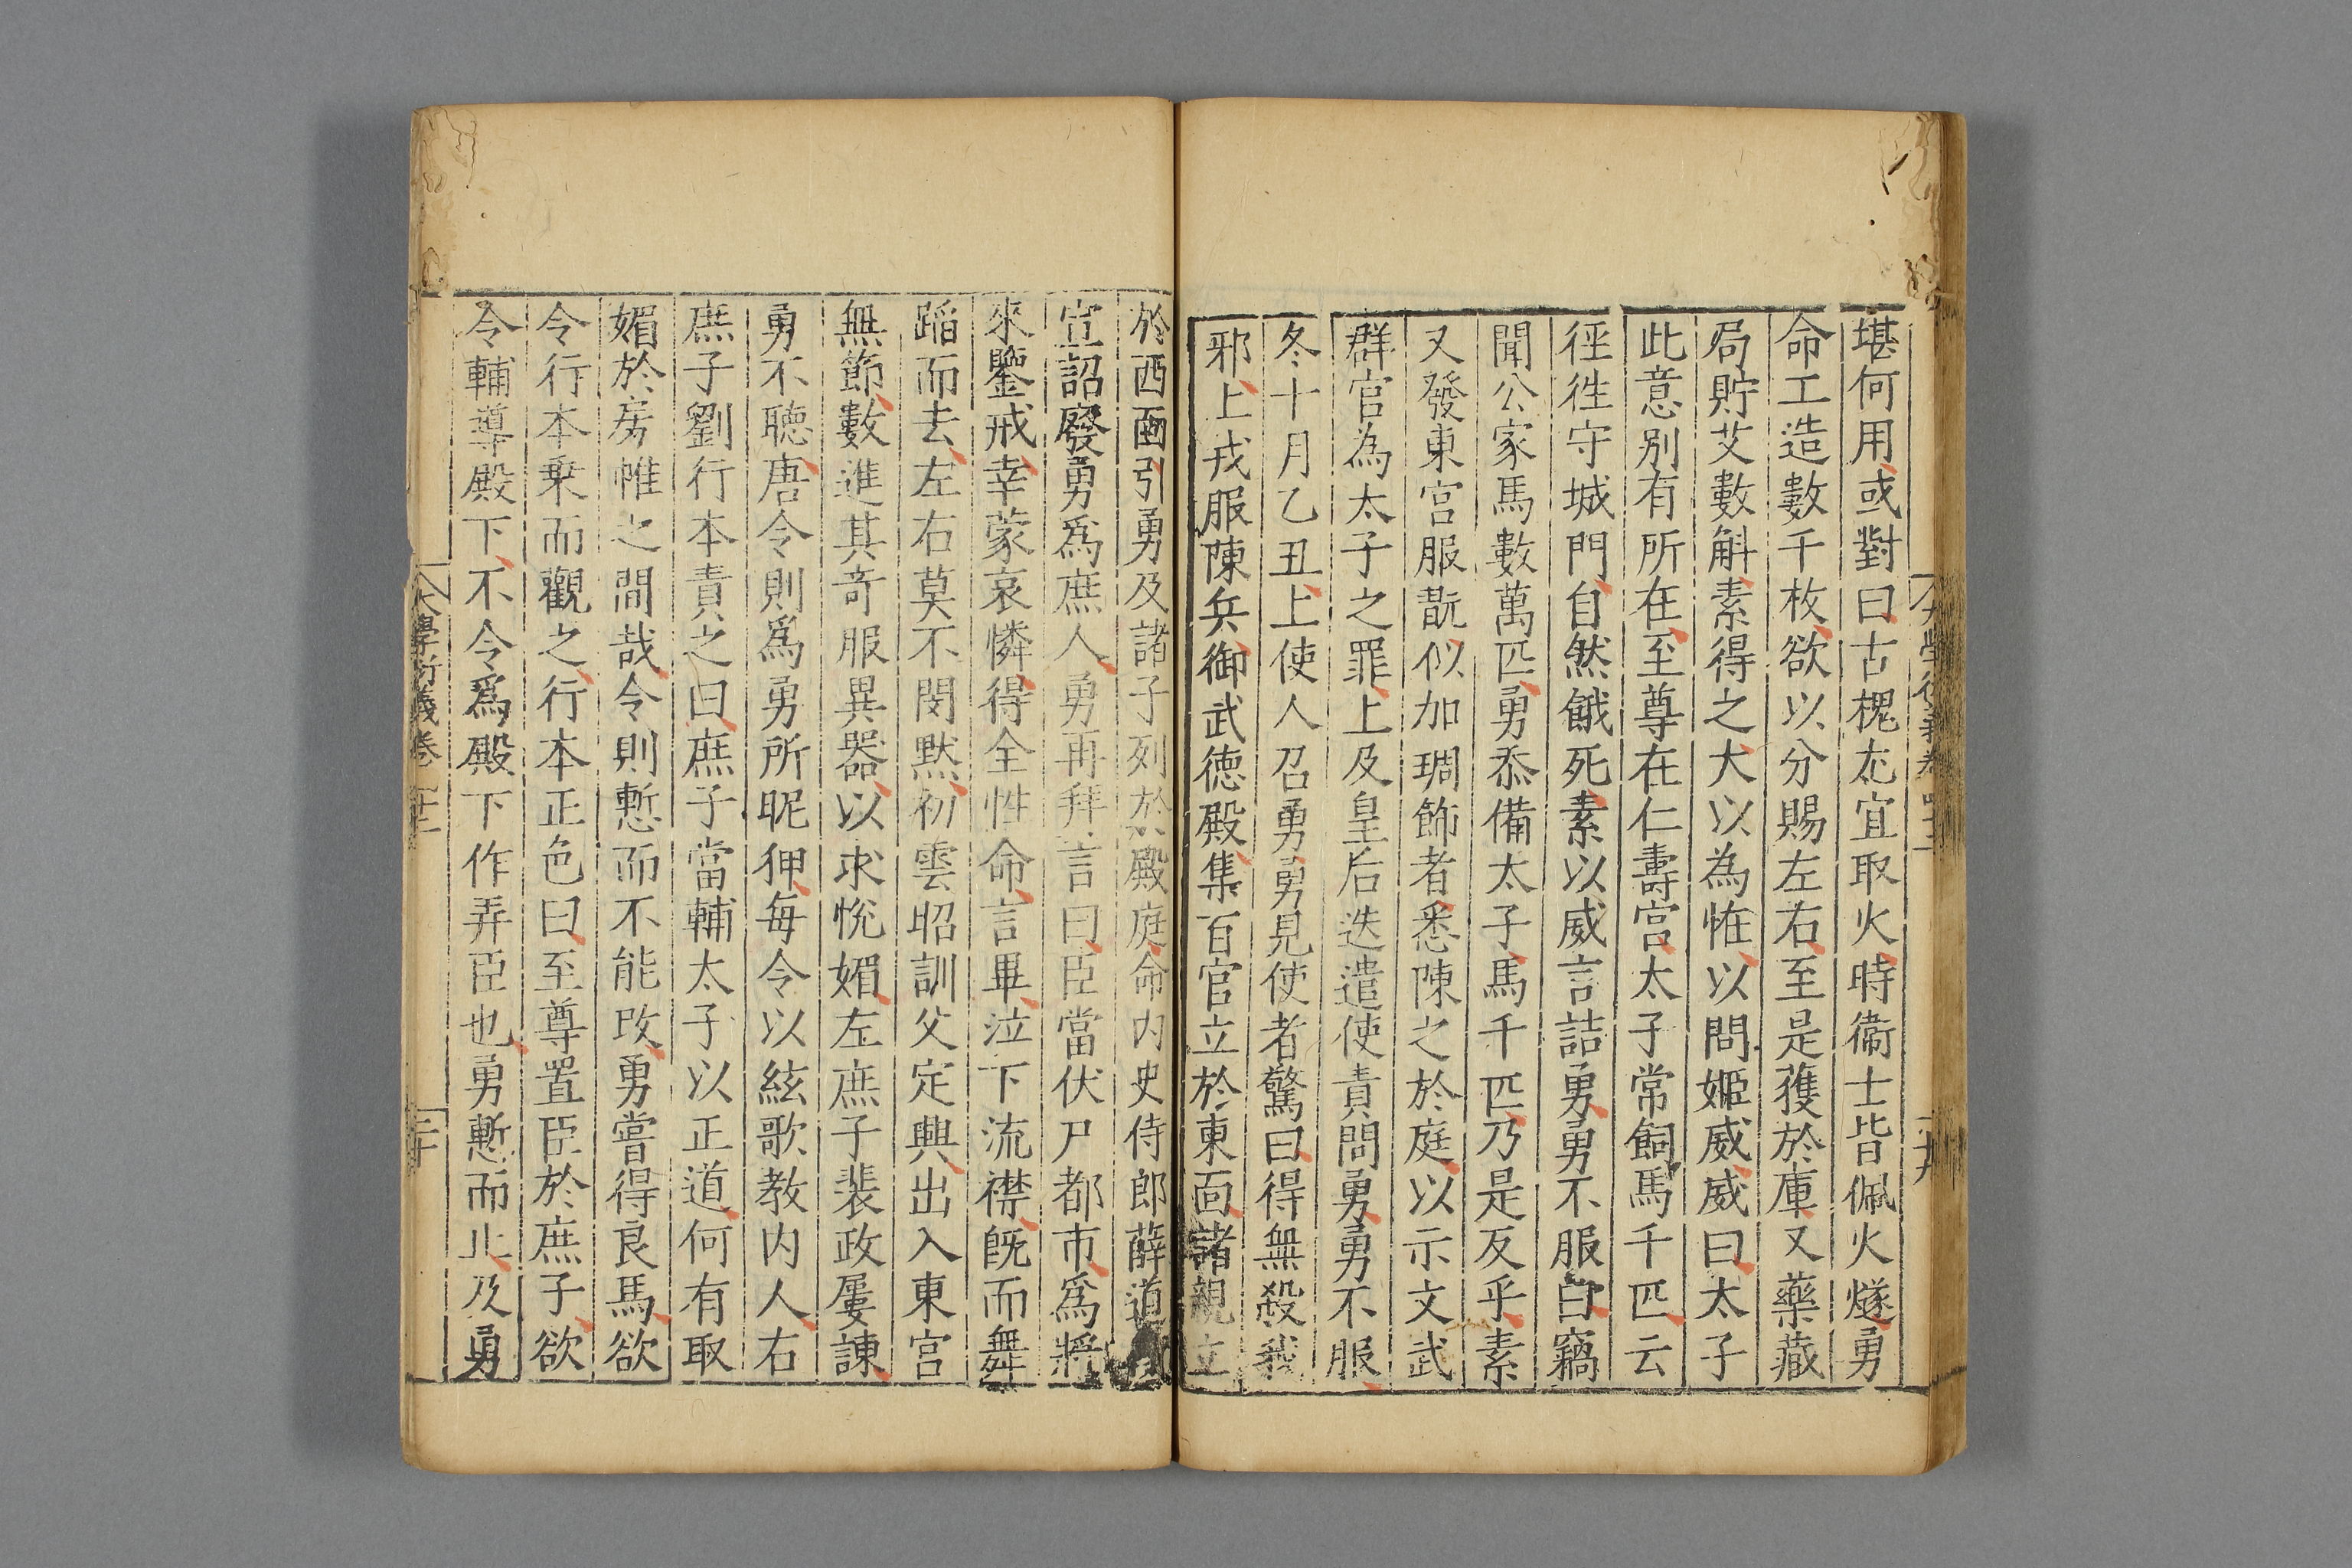 堪何用或對曰古槐尤宜取火時衞士皆佩火燧勇
命工造數千枚欲以分賜左右至是獲於庫又藥藏
局貯艾數斛素得之大以為恠以問姬威威曰太子
此意别有所在至尊在仁壽宮太子常飼馬千匹云
徑徃守城門自然餓死素以威言詰勇勇不服曰竊
聞公家馬數萬匹勇忝備太子馬千匹乃是反乎素
又發東宮服翫似加琱飾者悉陳之於庭以示文武
群官為太子之罪上及皇后迭遣使責問勇勇不服
冬十月乙丑上使人召勇勇見使者驚曰得無殺我
邪上戎服陳兵御武德殿集百官立於東面諸親立
於西面引勇及諸子列於殿庭命内史侍郎薛道
宣詔廢勇爲庶人勇再拜言曰臣當伏尸都市爲將
來鑒戒幸蒙哀憐得全性命言畢泣下流襟旣而舞
蹈而去左右莫不閔默初雲昭訓父定興出入東宮
無節數進其奇服異器以求悅媚左庶子裴政屢諫
勇不聽唐令則爲勇所昵狎每令以絃歌教内人右
庶子劉行本責之曰庶子當輔太子以正道何有取
媚於房帷之間哉令則慙而不能改勇嘗得良馬欲
令行本乗而觀之行本正色曰至尊置臣於庶子欲
令輔導殿下不令爲殿下作弄臣也勇慙而止及勇
大學衍義卷 三十